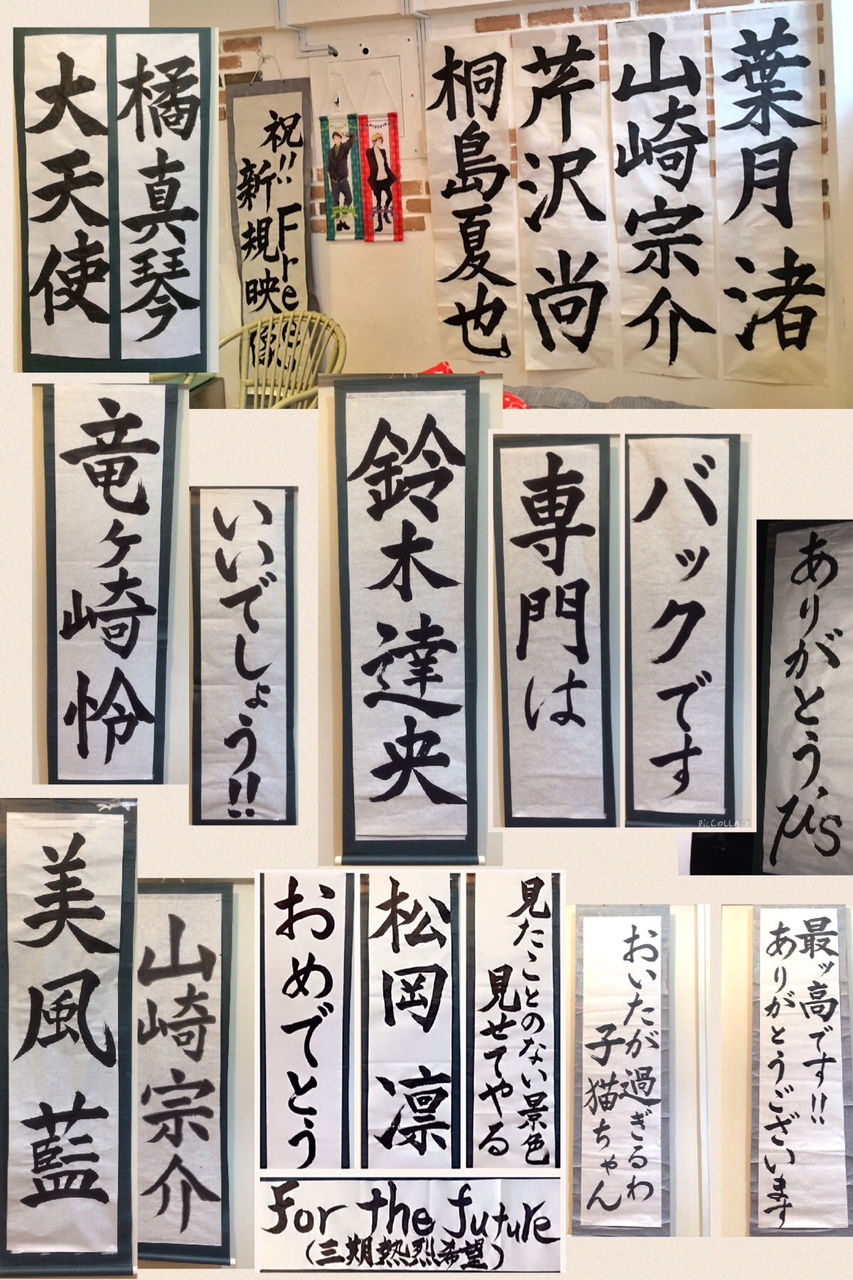 橘真琴
大天使
祝!!Free
新規映像
葉月渚
山崎宗介
芹沢尚
桐島夏也。
竜ヶ崎怜
いいでしょう!!
鈴木達央
専門は
バックです
ありがとう、μ's
PicCOLLAGE
美風藍
山崎宗介
おめでとう
松岡凛
見たことのない景色
見せてやる
For the future
(三期熱烈希望)
おいたが過ぎるわ
子猫ちゃん
最ッ高です!!
ありがとうございます